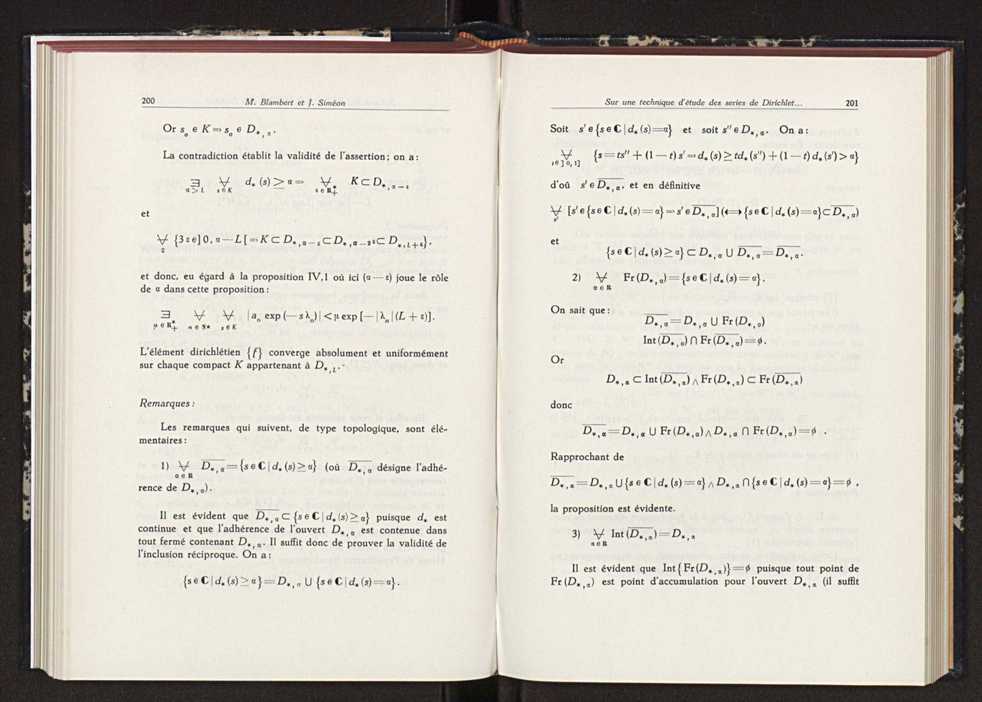 200
M. Blambert et J. Siméon
Or s_o ∈ K ⇒ s_o ∈ D_{*,α}.
La contradiction établit la validité de l'assertion; on a:
∃_{α>L} ∀_{s∈K} d_*(s) ≥ α ⇒ ∀_{ε∈R_+^*} K ⊂ D_{*,α−ε}
et
∀_ε {3ε∈]0, α—L[ ⇒ K ⊂ D_{*,α−ε} ⊂ D_{*,α−2ε} ⊂ D_{*,L+ε}}.
et donc, eu égard à la proposition IV,1 où ici (α—ε) joue le rôle
de α dans cette proposition:
∃_{μ∈R_+^*} ∀_{n∈N*} ∀_{s∈K} |a_n exp(—sλ_n)| < μ exp[—|λ_n|(L + ε)].
L'élément dirichlétien {f} converge absolument et uniformément
sur chaque compact K appartenant à D_{*,L}.
Remarques:
Les remarques qui suivent, de type topologique, sont élé-
mentaires:
1) ∀_{α∈R} \overline{D_{*,α}} = {s∈C | d_*(s) ≥ α} (où \overline{D_{*,α}} désigne l'adhé-
rence de D_{*,α}).
Il est évident que \overline{D_{*,α}} ⊂ {s∈C | d_*(s) ≥ α} puisque d_* est
continue et que l'adhérence de l'ouvert D_{*,α} est contenue dans
tout fermé contenant D_{*,α}. Il suffit donc de prouver la validité de
l'inclusion réciproque. On a:
{s∈C | d_*(s) ≥ α} = D_{*,α} ∪ {s∈C | d_*(s) = α}.
Sur une technique d'étude des series de Dirichlet...
201
Soit s'∈{s∈C | d_*(s)=α} et soit s''∈D_{*,α}. On a:
∀_{t∈]0,1]} {s = ts'' + (1—t)s' ⇒ d_*(s) ≥ td_*(s'') + (1—t)d_*(s') > α}
d'où s'∈\overline{D_{*,α}}, et en définitive
∀_{s'} [s'∈{s∈C | d_*(s) = α} ⇒ s'∈\overline{D_{*,α}}] (⟺ {s∈C | d_*(s) = α} ⊂ \overline{D_{*,α}})
et
{s∈C | d_*(s) ≥ α} ⊂ D_{*,α} ∪ \overline{D_{*,α}} = \overline{D_{*,α}}.
2) ∀_{α∈R} Fr(D_{*,α}) = {s∈C | d_*(s) = α}.
On sait que:
\overline{D_{*,α}} = D_{*,α} ∪ Fr(D_{*,α})
Int(\overline{D_{*,α}}) ∩ Fr(\overline{D_{*,α}}) = ϕ.
Or
D_{*,α} ⊂ Int(\overline{D_{*,α}}) ∧ Fr(D_{*,α}) ⊂ Fr(\overline{D_{*,α}})
donc
\overline{D_{*,α}} = D_{*,α} ∪ Fr(D_{*,α}) ∧ D_{*,α} ∩ Fr(D_{*,α}) = ϕ .
Rapprochant de
\overline{D_{*,α}} = D_{*,α} ∪ {s∈C | d_*(s) = α} ∧ D_{*,α} ∩ {s∈C | d_*(s) = α} = ϕ ,
la proposition est évidente.
3) ∀_{α∈R} Int(\overline{D_{*,α}}) = D_{*,α}
Il est évident que Int{Fr(D_{*,α})} = ϕ puisque tout point de
Fr(D_{*,α}) est point d'accumulation pour l'ouvert D_{*,α} (il suffit